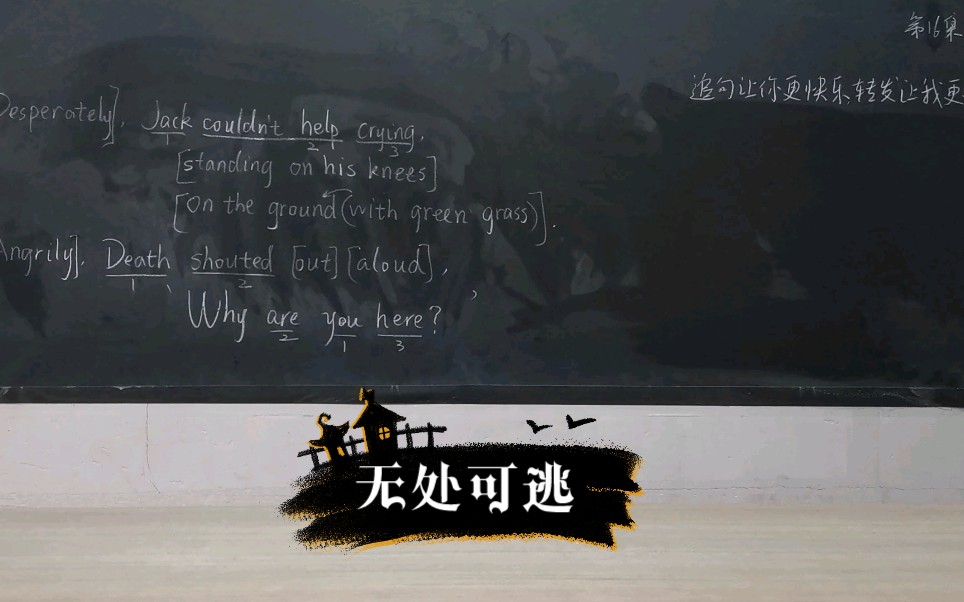 第16集
追句让你更快乐,转发让我更
Desperately], Jack couldn't help crying,
1 2 3
[standing on his knees]
[on the ground(with green grass)].
Angrily], Death shouted [out] [aloud],
1 2
'Why are you here?'
2 1 3
无处可逃